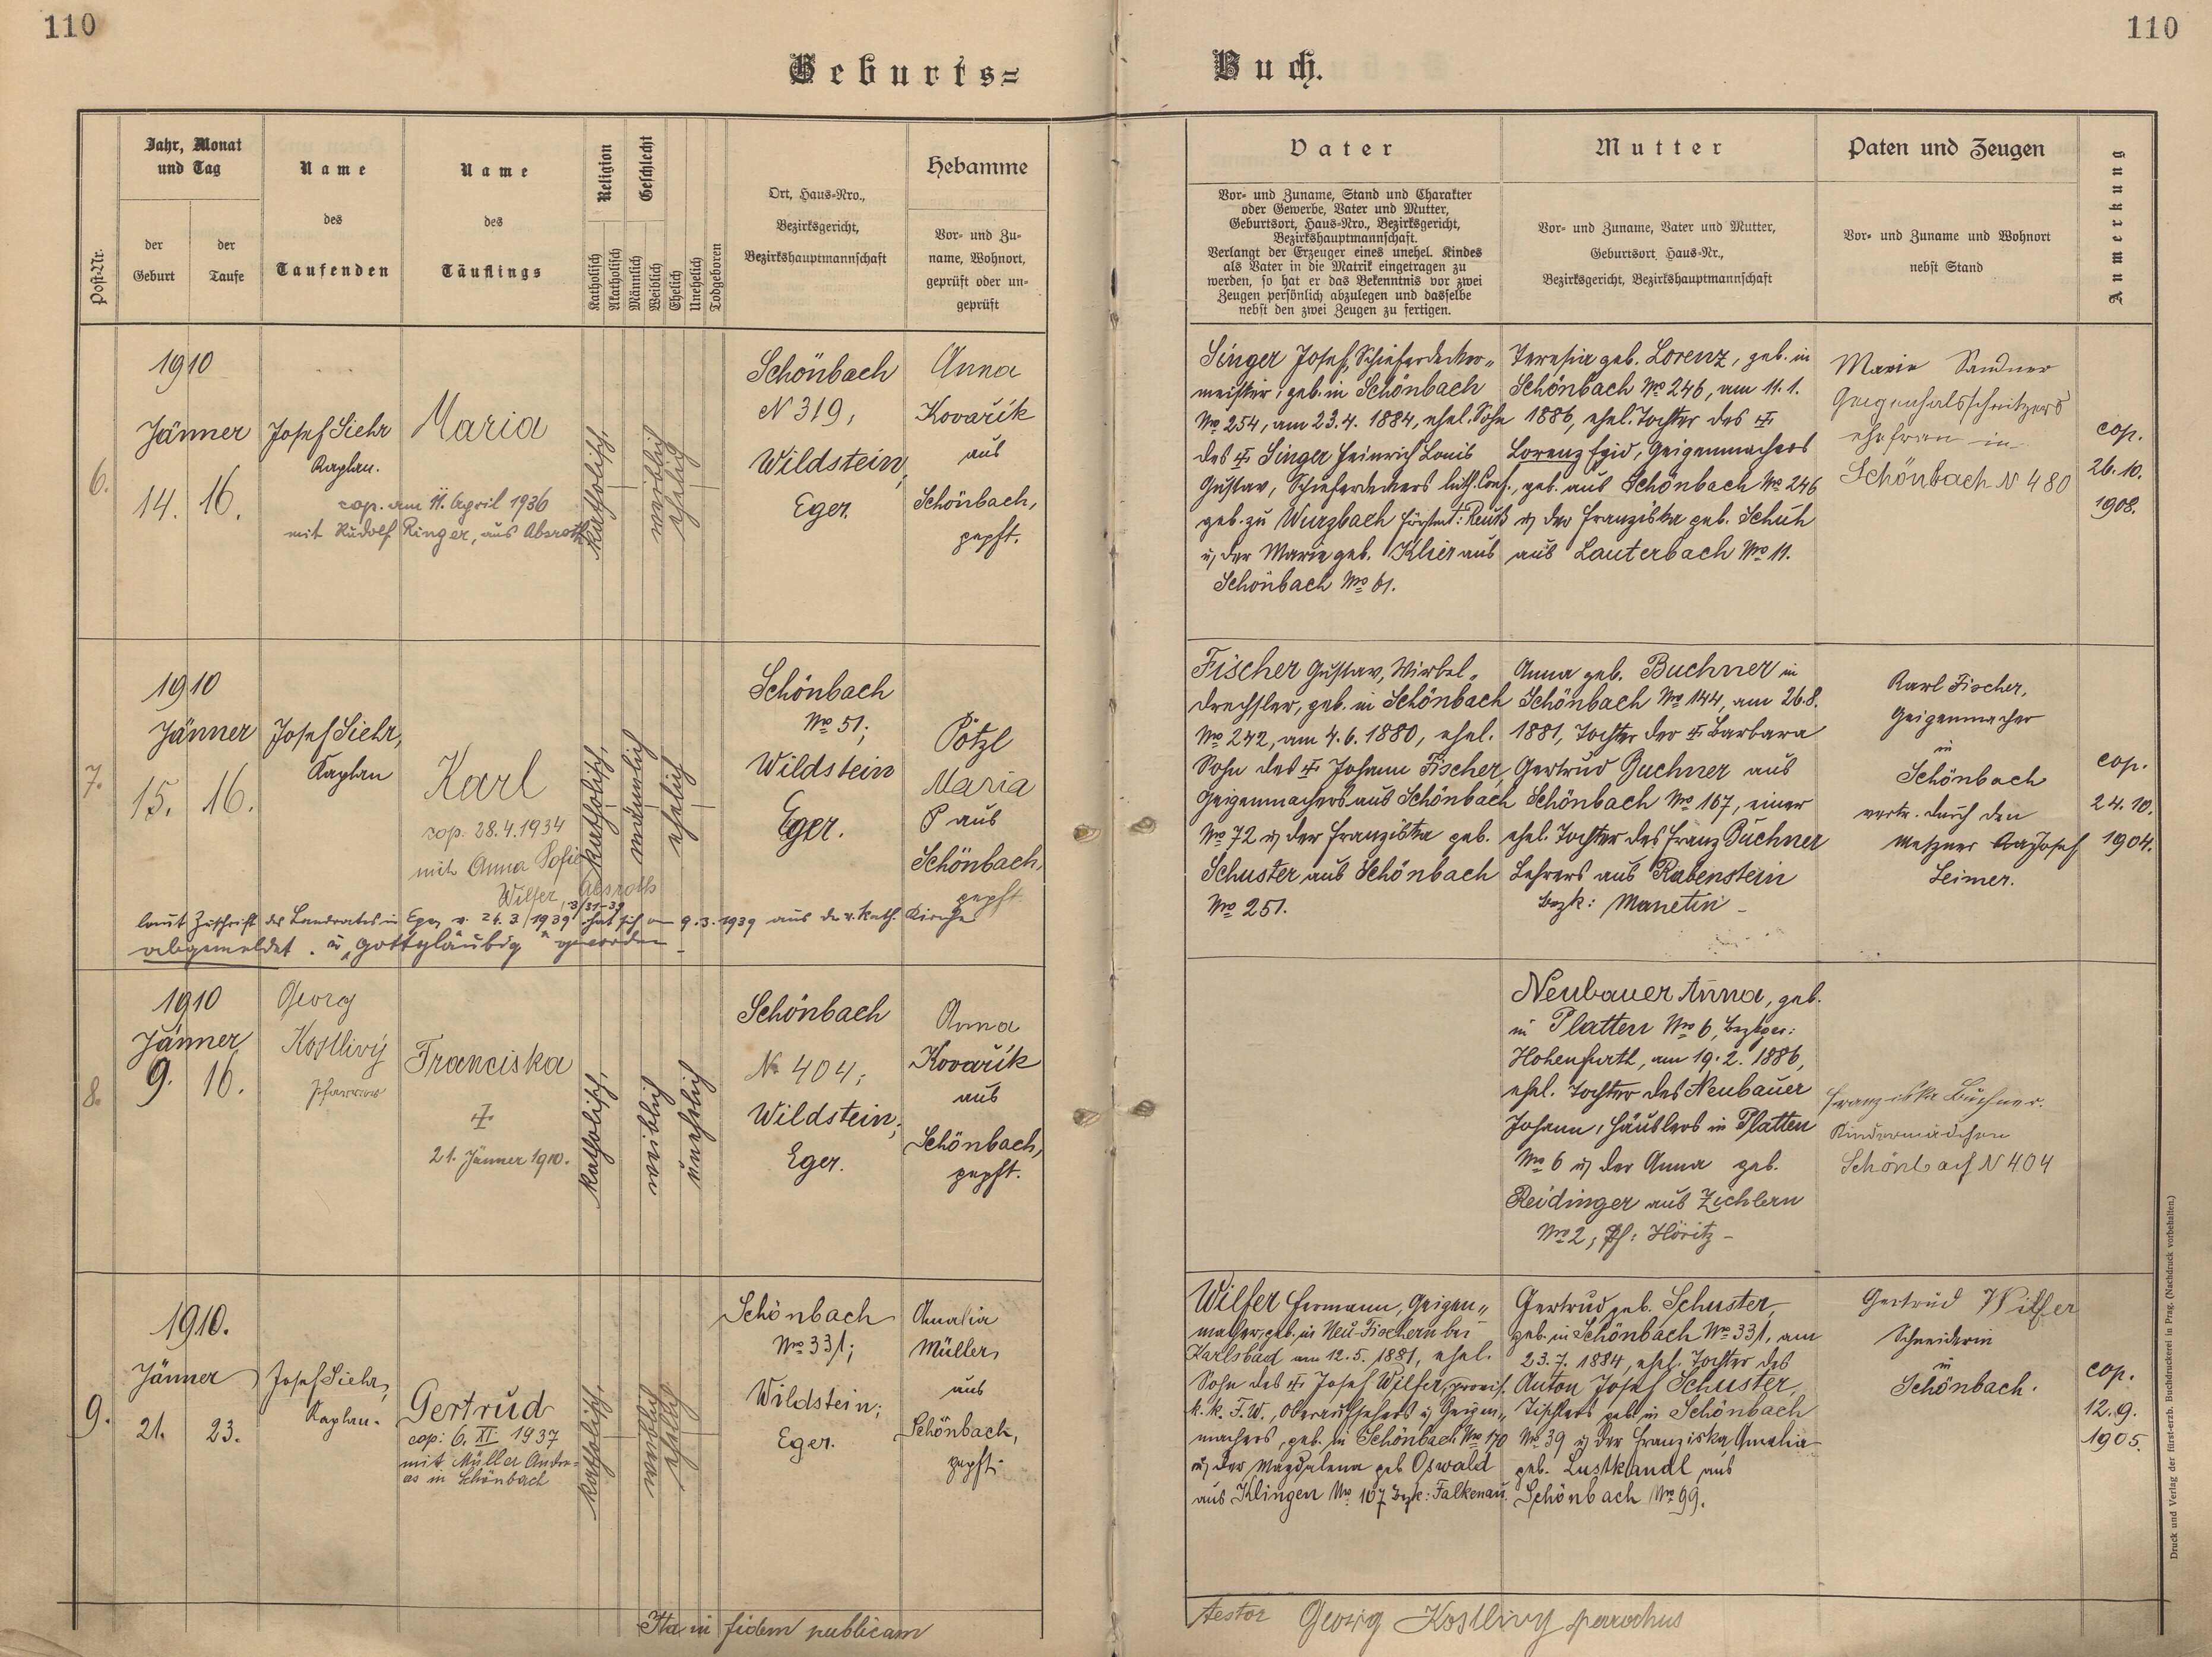 110
110
Geburts=
Buch.
Post-Nr.
Jahr, Monat
und Tag
der
Geburt
der
Taufe
Name
des
Taufenden
Name
des
Täuflings
Religion
Katholisch
Akatholisch
Geschlecht
Männlich
Weiblich
Ehelich
Unehelich
Todgeboren
Ort, Haus-Nro.,
Bezirksgericht,
Bezirkshauptmannschaft
Hebamme
Vor- und Zu-
name, Wohnort,
geprüft oder un-
geprüft
Vater
Vor- und Zuname, Stand und Charakter
oder Gewerbe, Vater und Mutter,
Geburtsort, Haus-Nro., Bezirksgericht,
Bezirkshauptmannschaft.
Verlangt der Erzeuger eines unehel. Kindes
als Vater in die Matrik eingetragen zu
werden, so hat er das Bekenntnis vor zwei
Zeugen persönlich abzulegen und dasselbe
nebst den zwei Zeugen zu fertigen.
Mutter
Vor- und Zuname, Vater und Mutter,
Geburtsort, Haus-Nr.,
Bezirksgericht, Bezirkshauptmannschaft
Paten und Zeugen
Vor- und Zuname und Wohnort
nebst Stand
Anmerkung
6.
1910
Jänner
14. 16.
Josef Siehr
Kaplan.
Maria
cop. am 11. April 1936
mit Rudolf Ringer, aus Absroth
katholisch,
weiblich
ehelich
Schönbach
N 319,
Wildstein,
Eger.
Anna
Kovařík
aus
Schönbach,
gepft.
Singer Josef, Schieferdecker„
meister, geb. in Schönbach
No 254, am 23.4. 1884, ehel. Sohn
des ✠ Singer Heinrich Louis
Gustav, Schieferdeckers luth. Conf.,
geb. zu Wurzbach Fürstent: Reuß
u. der Marie geb. Klier aus
Schönbach No 61.
Teresia geb. Lorenz, geb. in
Schönbach No 246, am 11.1.
1886, ehel. Tochter des ✠
Lorenz Egid, Geigenmachers
geb. aus Schönbach No 246
u. der Franziska geb. Schuh
aus Lauterbach No 11.
Marie Sandner
Geigenhalsschnitzers
ehefrau in
Schönbach N 480
cop.
26.10.
1908.
7.
1910
Jänner
15. 16.
Josef Siehr,
Kaplan
Karl
cop. 28.4.1934
mit Anna Sofie
Wilfer, Absroth
3/31-39
laut Zuschrift des Landrates in Eger v. 24.3.1939 hat sich am 9.3.1939 aus der r. kath. Kirche
abgemeldet. u. „gottgläubig“ geworden
katholisch,
männlich
ehelich
Schönbach
No 51;
Wildstein
Eger.
Pötzl
Maria
aus
Schönbach,
gepft
Fischer Gustav, Wirbel„
drechsler, geb. in Schönbach
No 242, am 4.6.1880, ehel.
Sohn des ✠ Johann Fischer,
Geigenmachers aus Schönbach
No 72 u. der Franziska geb.
Schuster aus Schönbach
No 251.
Anna geb. Buchner in
Schönbach No 144, am 26.8.
1881, Tochter der ✠ Barbara
Gertrud Buchner aus
Schönbach No 167, einer
ehel. Tochter des Franz Buchner
Lehrers aus Rabenstein
Bezk: Manetin
Karl Fischer,
Geigenmacher
in
Schönbach
vertr. durch den
Metzner Josef
Leimer.
cop.
24.10.
1904.
8.
1910
Jänner
9. 16.
Georg
Kostlivý
Pfarrer
Franciska
✠
21. Jänner 1910.
katholisch,
weiblich
unehelich
Schönbach
No 404;
Wildstein;
Eger.
Anna
Kovařík
aus
Schönbach,
gepft.
Neubauer Anna, geb.
in Platten No 6, Bezkger:
Hohenfurth, am 19.2.1886,
ehel. Tochter des Neubauer
Johann, Häuslers in Platten
No 6 u. der Anna geb.
Reidinger aus Zichlern
No 2, Pf: Höritz –
Franziska Buchner.
Kindermädchen
Schönbach N 404
9.
1910.
Jänner
21. 23.
Josef Siehr,
Kaplan.
Gertrud
cop: 6. XI. 1937
mit Müller Andre-
as in Schönbach
katholisch,
weiblich
ehelich
Schönbach
No 331;
Wildstein;
Eger.
Amalia
Müller,
aus
Schönbach,
gepft.
Wilfer Hermann, Geigen„
macher, geb. in Neu-Fischern bei
Karlsbad am 12.5.1881, ehel.
Sohn des ✠ Josef Wilfer, provis.
k. k. F.W., Oberaufsehers u. Geigen„
machers, geb. in Schönbach No 170
u. der Magdalena geb. Oswald
aus Klingen No 107 Bezk: Falkenau.
Gertrud geb. Schuster,
geb. in Schönbach No 331, am
23.7. 1884, ehel. Tochter des
Anton Josef Schuster,
Tischlers geb. in Schönbach
No 39 u. der Franziska Amalia
geb. Lustkandl aus
Schönbach No 99.
Gertrud Wilfer
Schneiderin
in
Schönbach.
cop.
12.9.
1905.
Ita in fidem publicam
testor Georg Kostlivý parochus
Druck und Verlag der fürst-erzb. Buchdruckerei in Prag. (Nachdruck vorbehalten.)